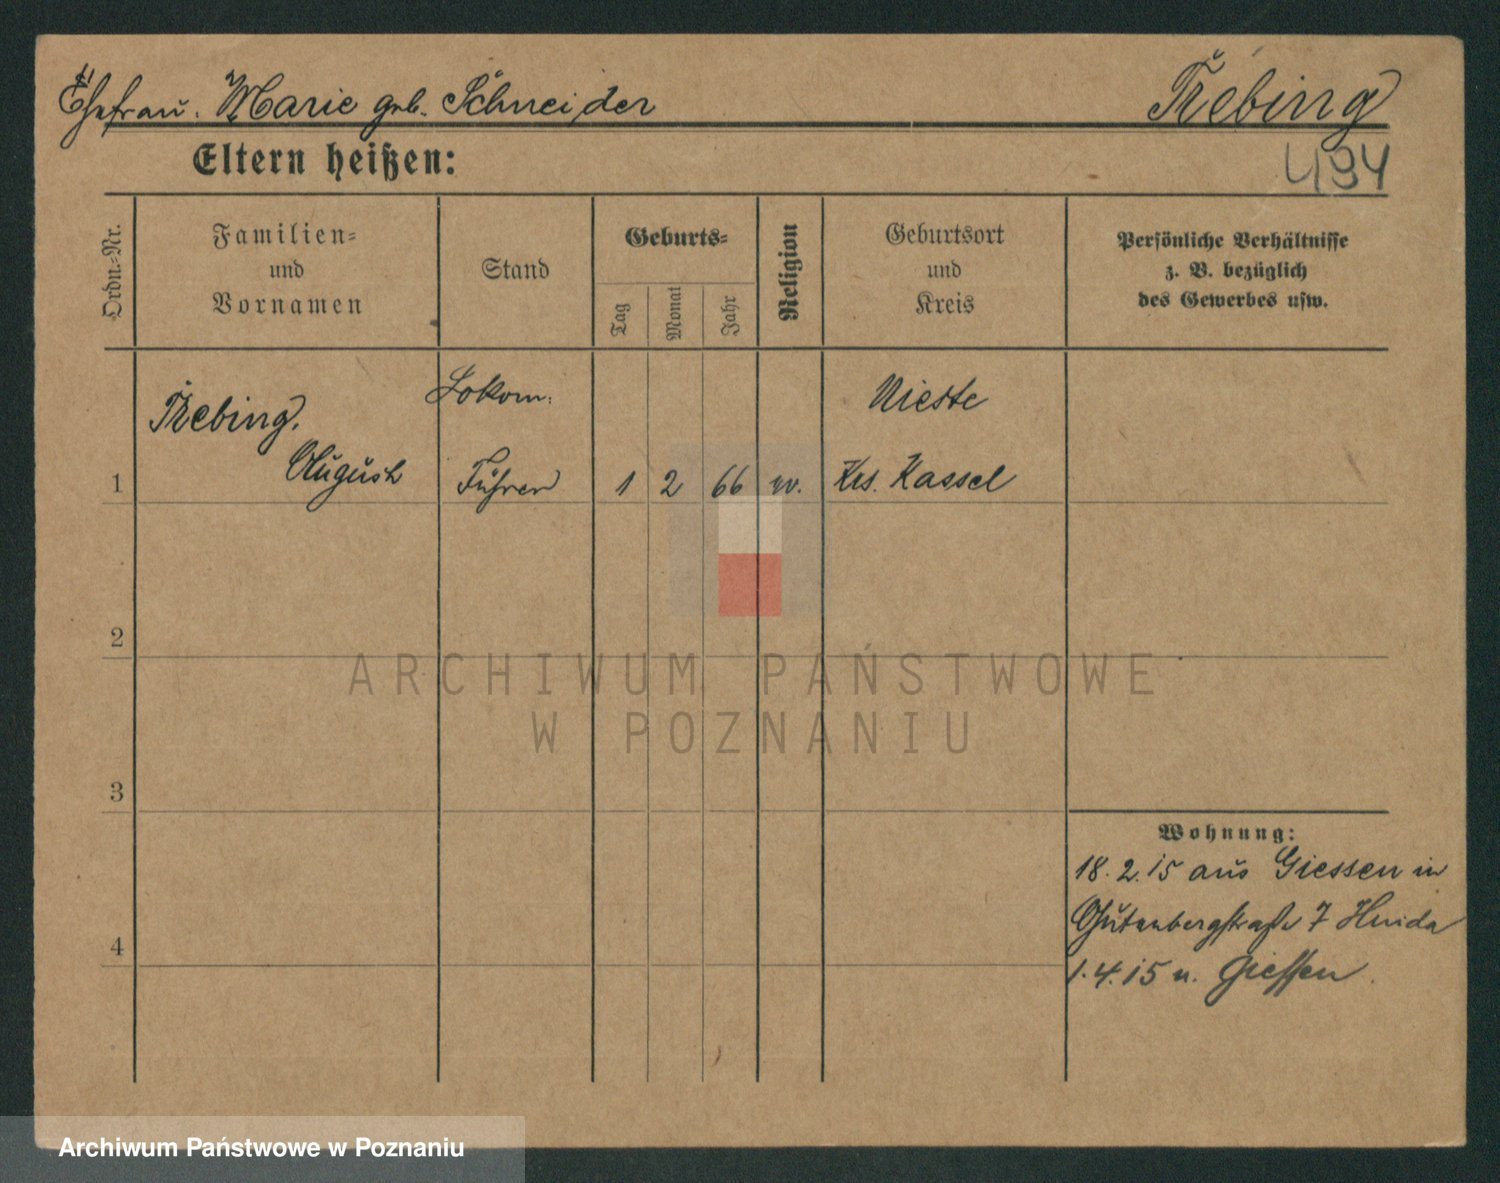 Ehefrau. Marie geb. Schneider
Trebing
494
Eltern heißen:
Ordn.=Nr.
Familien=
und
Vornamen
Stand
Geburts=
Tag
Monat
Jahr
Religion
Geburtsort
und
Kreis
Persönliche Verhältnisse
z. B. bezüglich
des Gewerbes usw.
Trebing,
Lokom.
Nieste
1
August
Führer
1 2 66
Krs. Kassel
2
3
4
Wohnung:
18.2.15 aus Giessen in
Gutenbergstraße 7
1.4.15 n. Giessen
ARCHIWUM PAŃSTWOWE
W POZNANIU
Archiwum Państwowe w Poznaniu